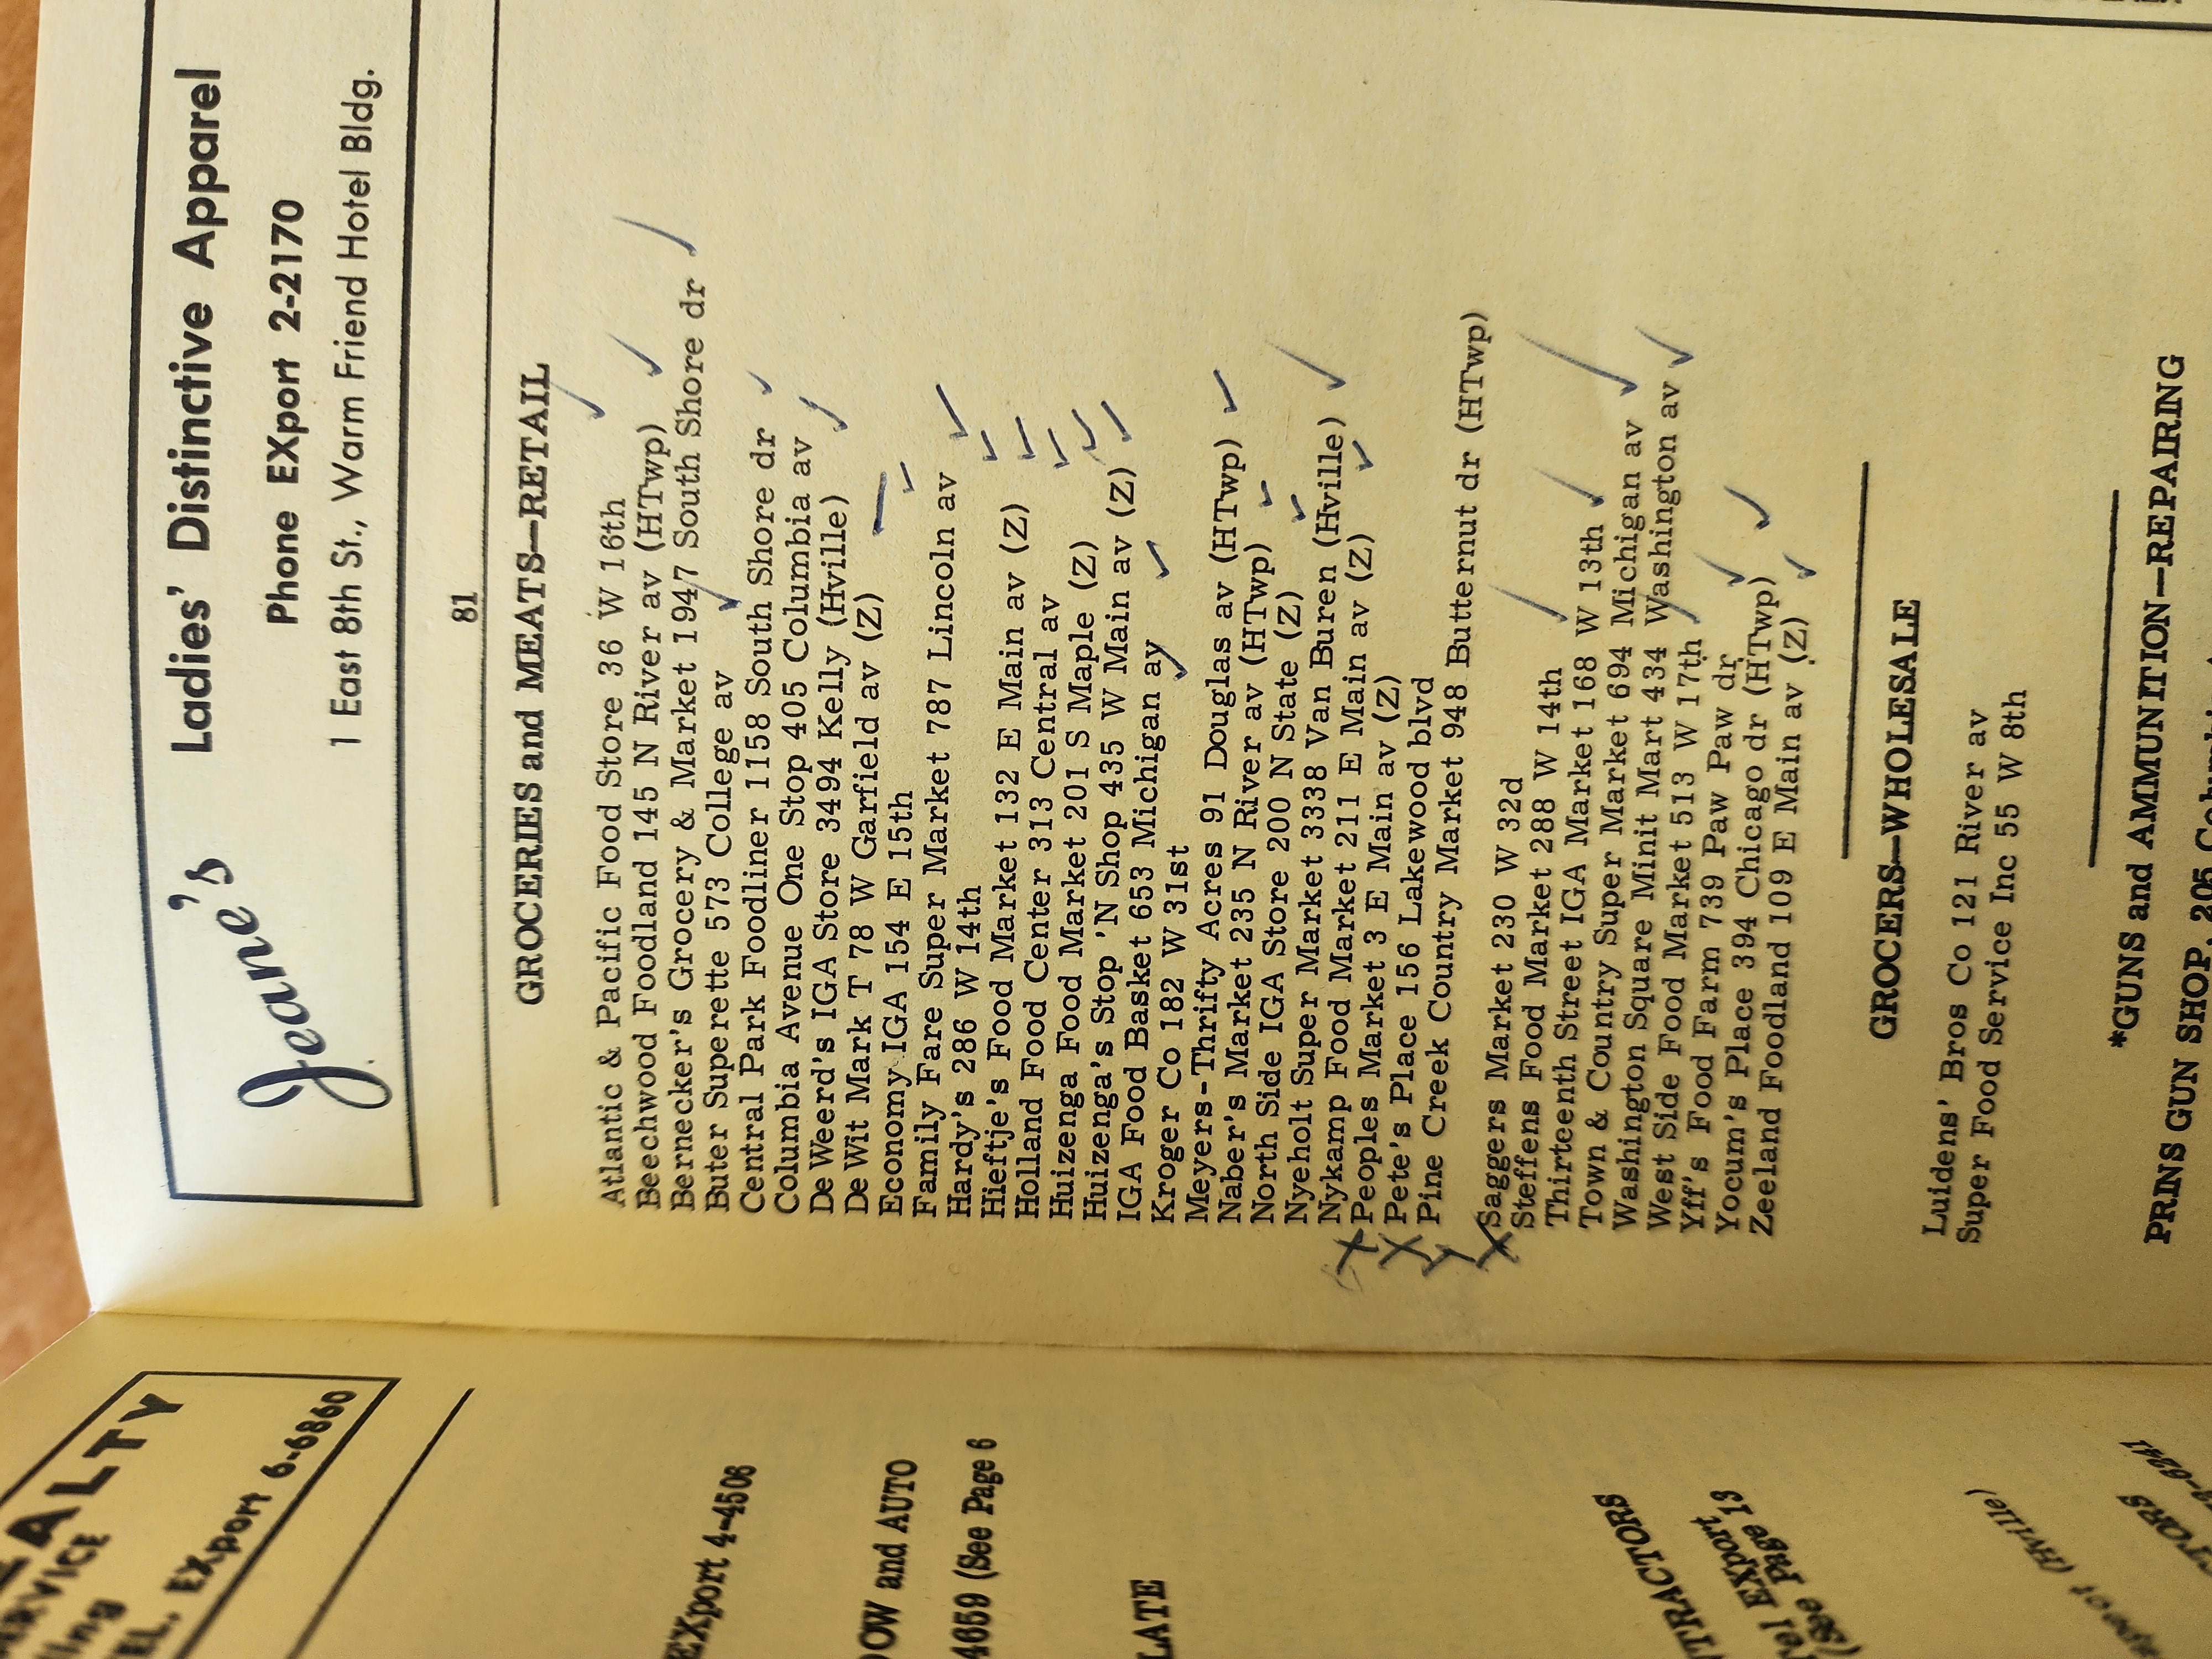 Jeane's
Ladies' Distinctive Apparel
Phone EXport 2-2170
1 East 8th St., Warm Friend Hotel Bldg.
81
GROCERIES and MEATS—RETAIL
Atlantic & Pacific Food Store 36 W 16th
Beechwood Foodland 145 N River av (HTwp)
Bernecker's Grocery & Market 1947 South Shore dr
Buter Superette 573 College av
Central Park Foodliner 1158 South Shore dr
Columbia Avenue One Stop 405 Columbia av
De Weerd's IGA Store 3494 Kelly (Hville)
De Wit Mark T 78 W Garfield av (Z)
Economy IGA 154 E 15th
Family Fare Super Market 787 Lincoln av
Hardy's 286 W 14th
Hieftje's Food Market 132 E Main av (Z)
Holland Food Center 313 Central av
Huizenga Food Market 201 S Maple (Z)
Huizenga's Stop 'N Shop 435 W Main av (Z)
IGA Food Basket 653 Michigan av
Kroger Co 182 W 31st
Meyers-Thrifty Acres 91 Douglas av (HTwp)
Naber's Market 235 N River av (HTwp)
North Side IGA Store 200 N State (Z)
Nyeholt Super Market 3338 Van Buren (Hville)
Nykamp Food Market 211 E Main av (Z)
X Peoples Market 3 E Main av (Z)
X Pete's Place 156 Lakewood blvd
Pine Creek Country Market 948 Butternut dr (HTwp)
X Saggers Market 230 W 32d
Steffens Food Market 288 W 14th
Thirteenth Street IGA Market 168 W 13th
Town & Country Super Market 694 Michigan av
Washington Square Minit Mart 434 Washington av
West Side Food Market 513 W 17th
Yff's Food Farm 739 Paw Paw dr
Yocum's Place 394 Chicago dr (HTwp)
Zeeland Foodland 109 E Main av (Z)
GROCERS—WHOLESALE
Luidens' Bros Co 121 River av
Super Food Service Inc 55 W 8th
*GUNS and AMMUNITION—REPAIRING
PRINS GUN SHOP, 205
ALTY
SERVICE
TEL. EXport 6-6860
EXport 4-4506
DOW and AUTO
4659 (See Page 6
LATE
TRACTORS
Tel EXport
(See Page 13
(Hville)
TORS